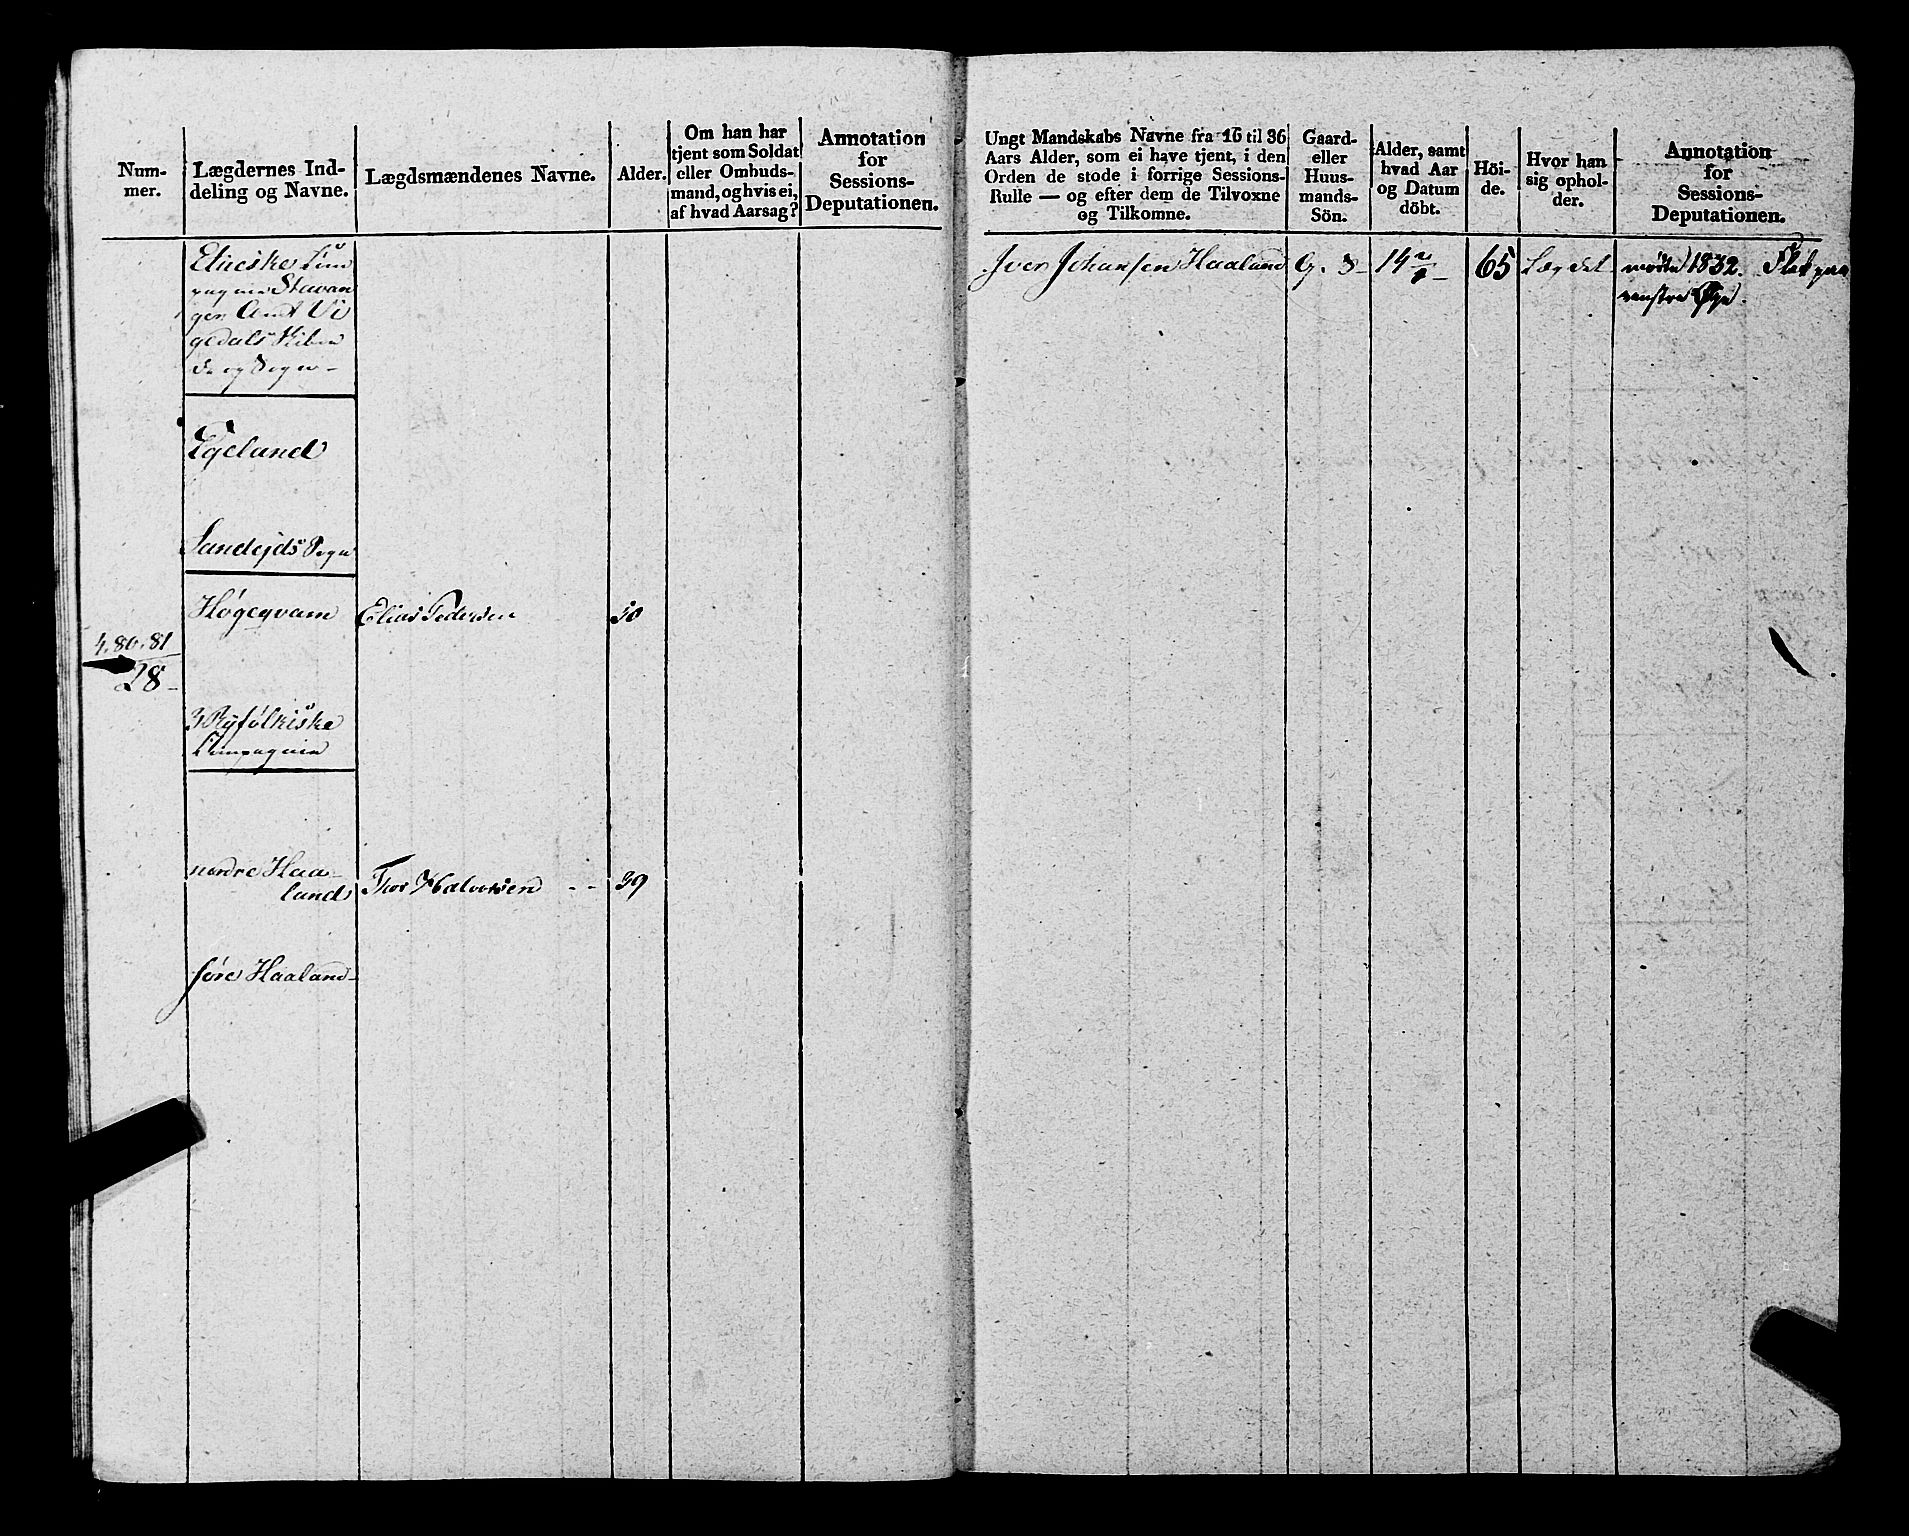 Num-
mer.
Lægdernes Ind-
deling og Navne.
Lægdsmændenes Navne.
Alder.
Om han har
tjent som Soldat
eller Ombuds-
mand, og hvis ei,
af hvad Aarsag?
Annotation
for
Sessions-
Deputationen.
Stavan
ger Amt Vi
gedals Skibre
de og Sogn -
Egeland
Sandejds Sogn
Høgeqvam
Elias Pedersen
50
4. 80. 81
28 -
3 Ryfølkiske
Compagnie
nordre Haa-
land
Thor Halvorsen - -
39
søre Haaland -
Ungt Mandskabs Navne fra 16 til 36
Aars Alder, som ei have tjent, i den
Orden de stode i forrige Sessions-
Rulle — og efter dem de Tilvoxne
og Tilkomne.
Gaard-
eller
Huus-
mands-
Sön.
Alder, samt
hvad Aar
og Datum
döbt.
Höi-
de.
Hvor han
sig ophol-
der.
Annotation
for
Sessions-
Deputationen.
Iver Johansen Haaland
G. S -
14
65
Lægdet
mødte 1832. Flek paa
venstre Øye.